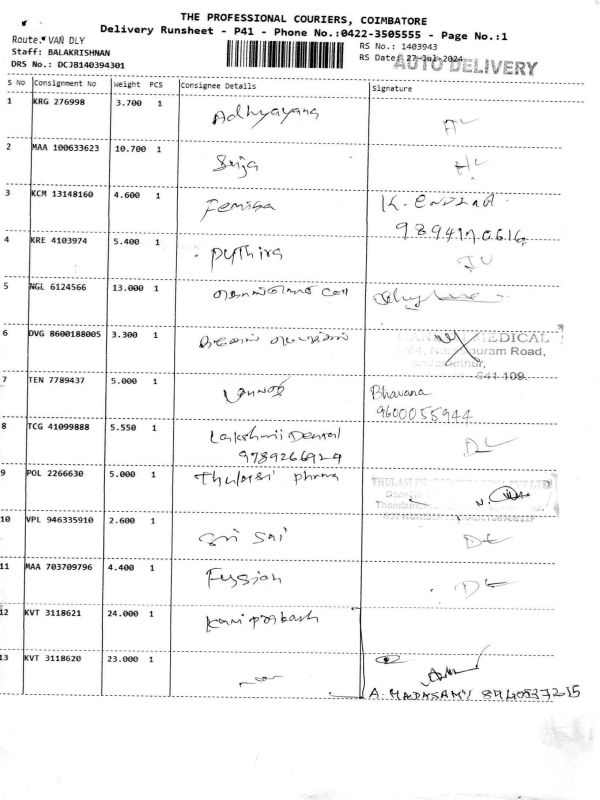 THE PROFESSIONAL COURIERS, COIMBATORE
Delivery Runsheet - P41 - Phone No.:0422-3505555 - Page No.:1
Route: VAN DLY
RS No.: 1403943
Staff: BALAKRISHNAN
RS Date: 27-Jul-2024
DRS No.: DCJB140394301
AUTO DELIVERY
S No Consignment No Weight PCS Consignee Details Signature
1 KRG 276998 3.700 1 Adhyayana
2 MAA 100633623 10.700 1 Srija
3 KCM 13148160 4.600 1 Femisa K.
9894170616
4 KRE 4103974 5.400 1 Pythira
5 NGL 6124566 13.000 1
6 DVG 8600188005 3.300 1 MEDICAL
puram Road,
641 109.
7 TEN 7789437 5.000 1 Bhavana
9600055944
8 TCG 41099888 5.550 1 Lakshmi Dental DL
9789266929
9 POL 2266630 5.000 1 Thulasi Phrma THULASI
10 VPL 946335910 2.600 1 Sri Sai DL
11 MAA 703709796 4.400 1 Fusion DL
12 KVT 3118621 24.000 1 Kani Prakash
13 KVT 3118620 23.000 1
A. MADASAMY